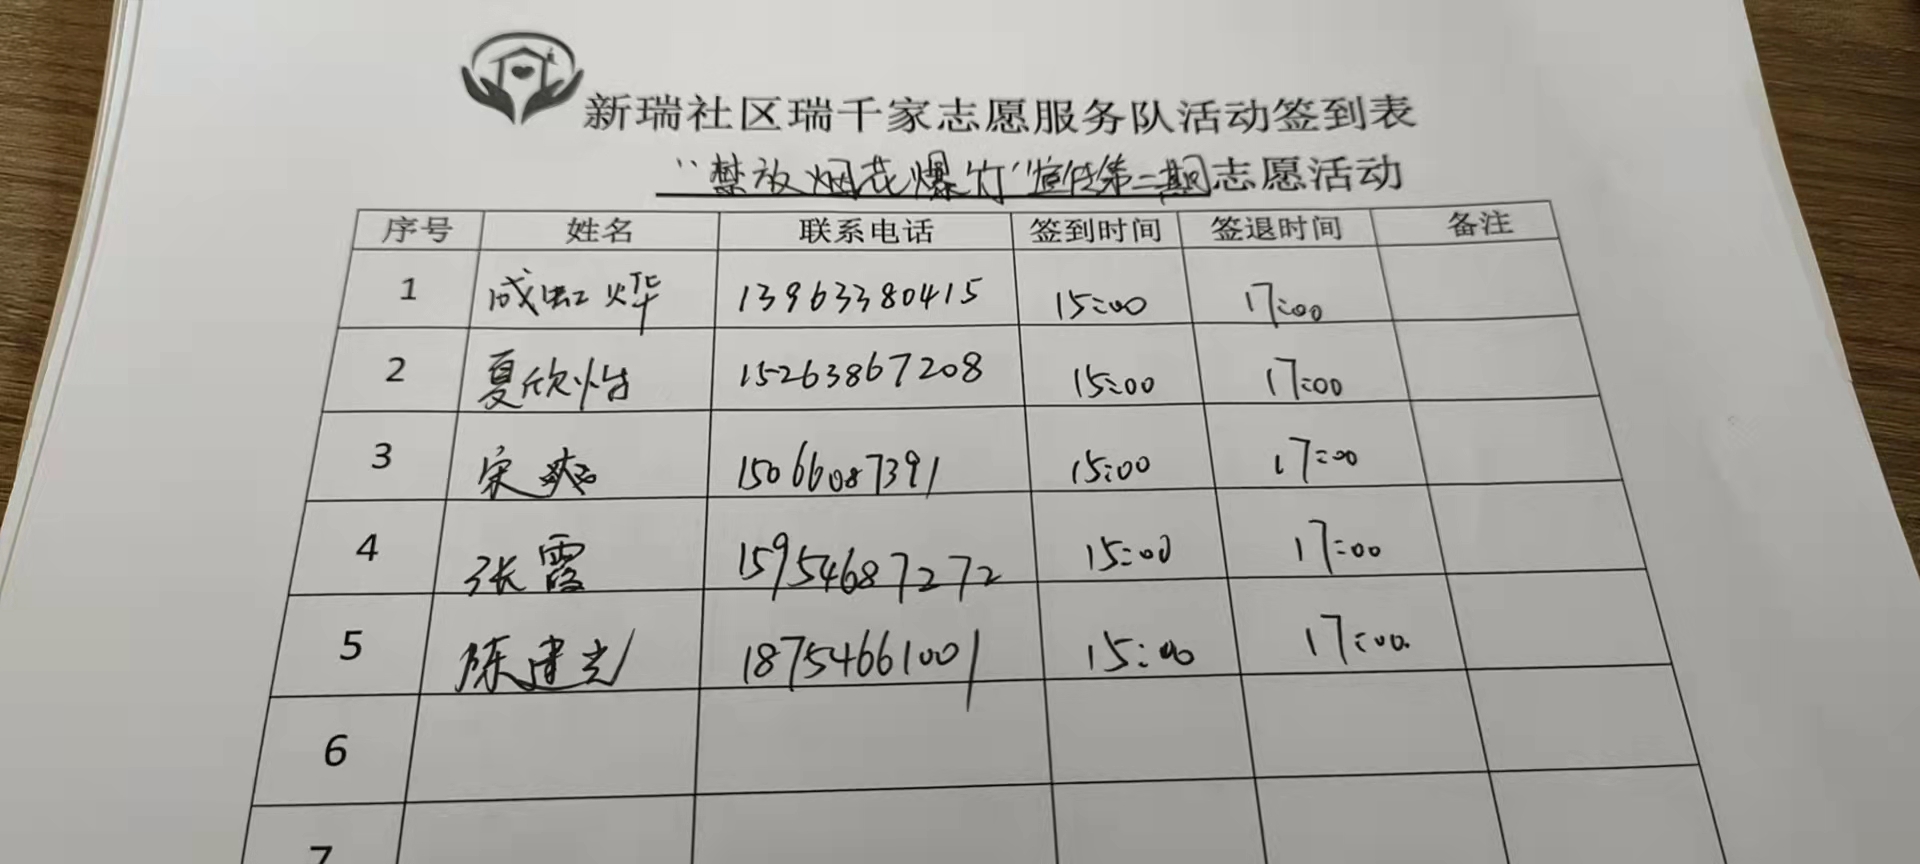 新瑞社区瑞千家志愿服务队活动签到表
“禁放烟花爆竹”宣传第二期志愿活动
序号 姓名 联系电话 签到时间 签退时间 备注
1 成虹烨 13963380415 15:00 17:00
2 夏欣怡 15263867208 15:00 17:00
3 宋爽 15066087391 15:00 17:00
4 张霞 15954687272 15:00 17:00
5 陈建光 18754661001 15:00 17:00
6
7